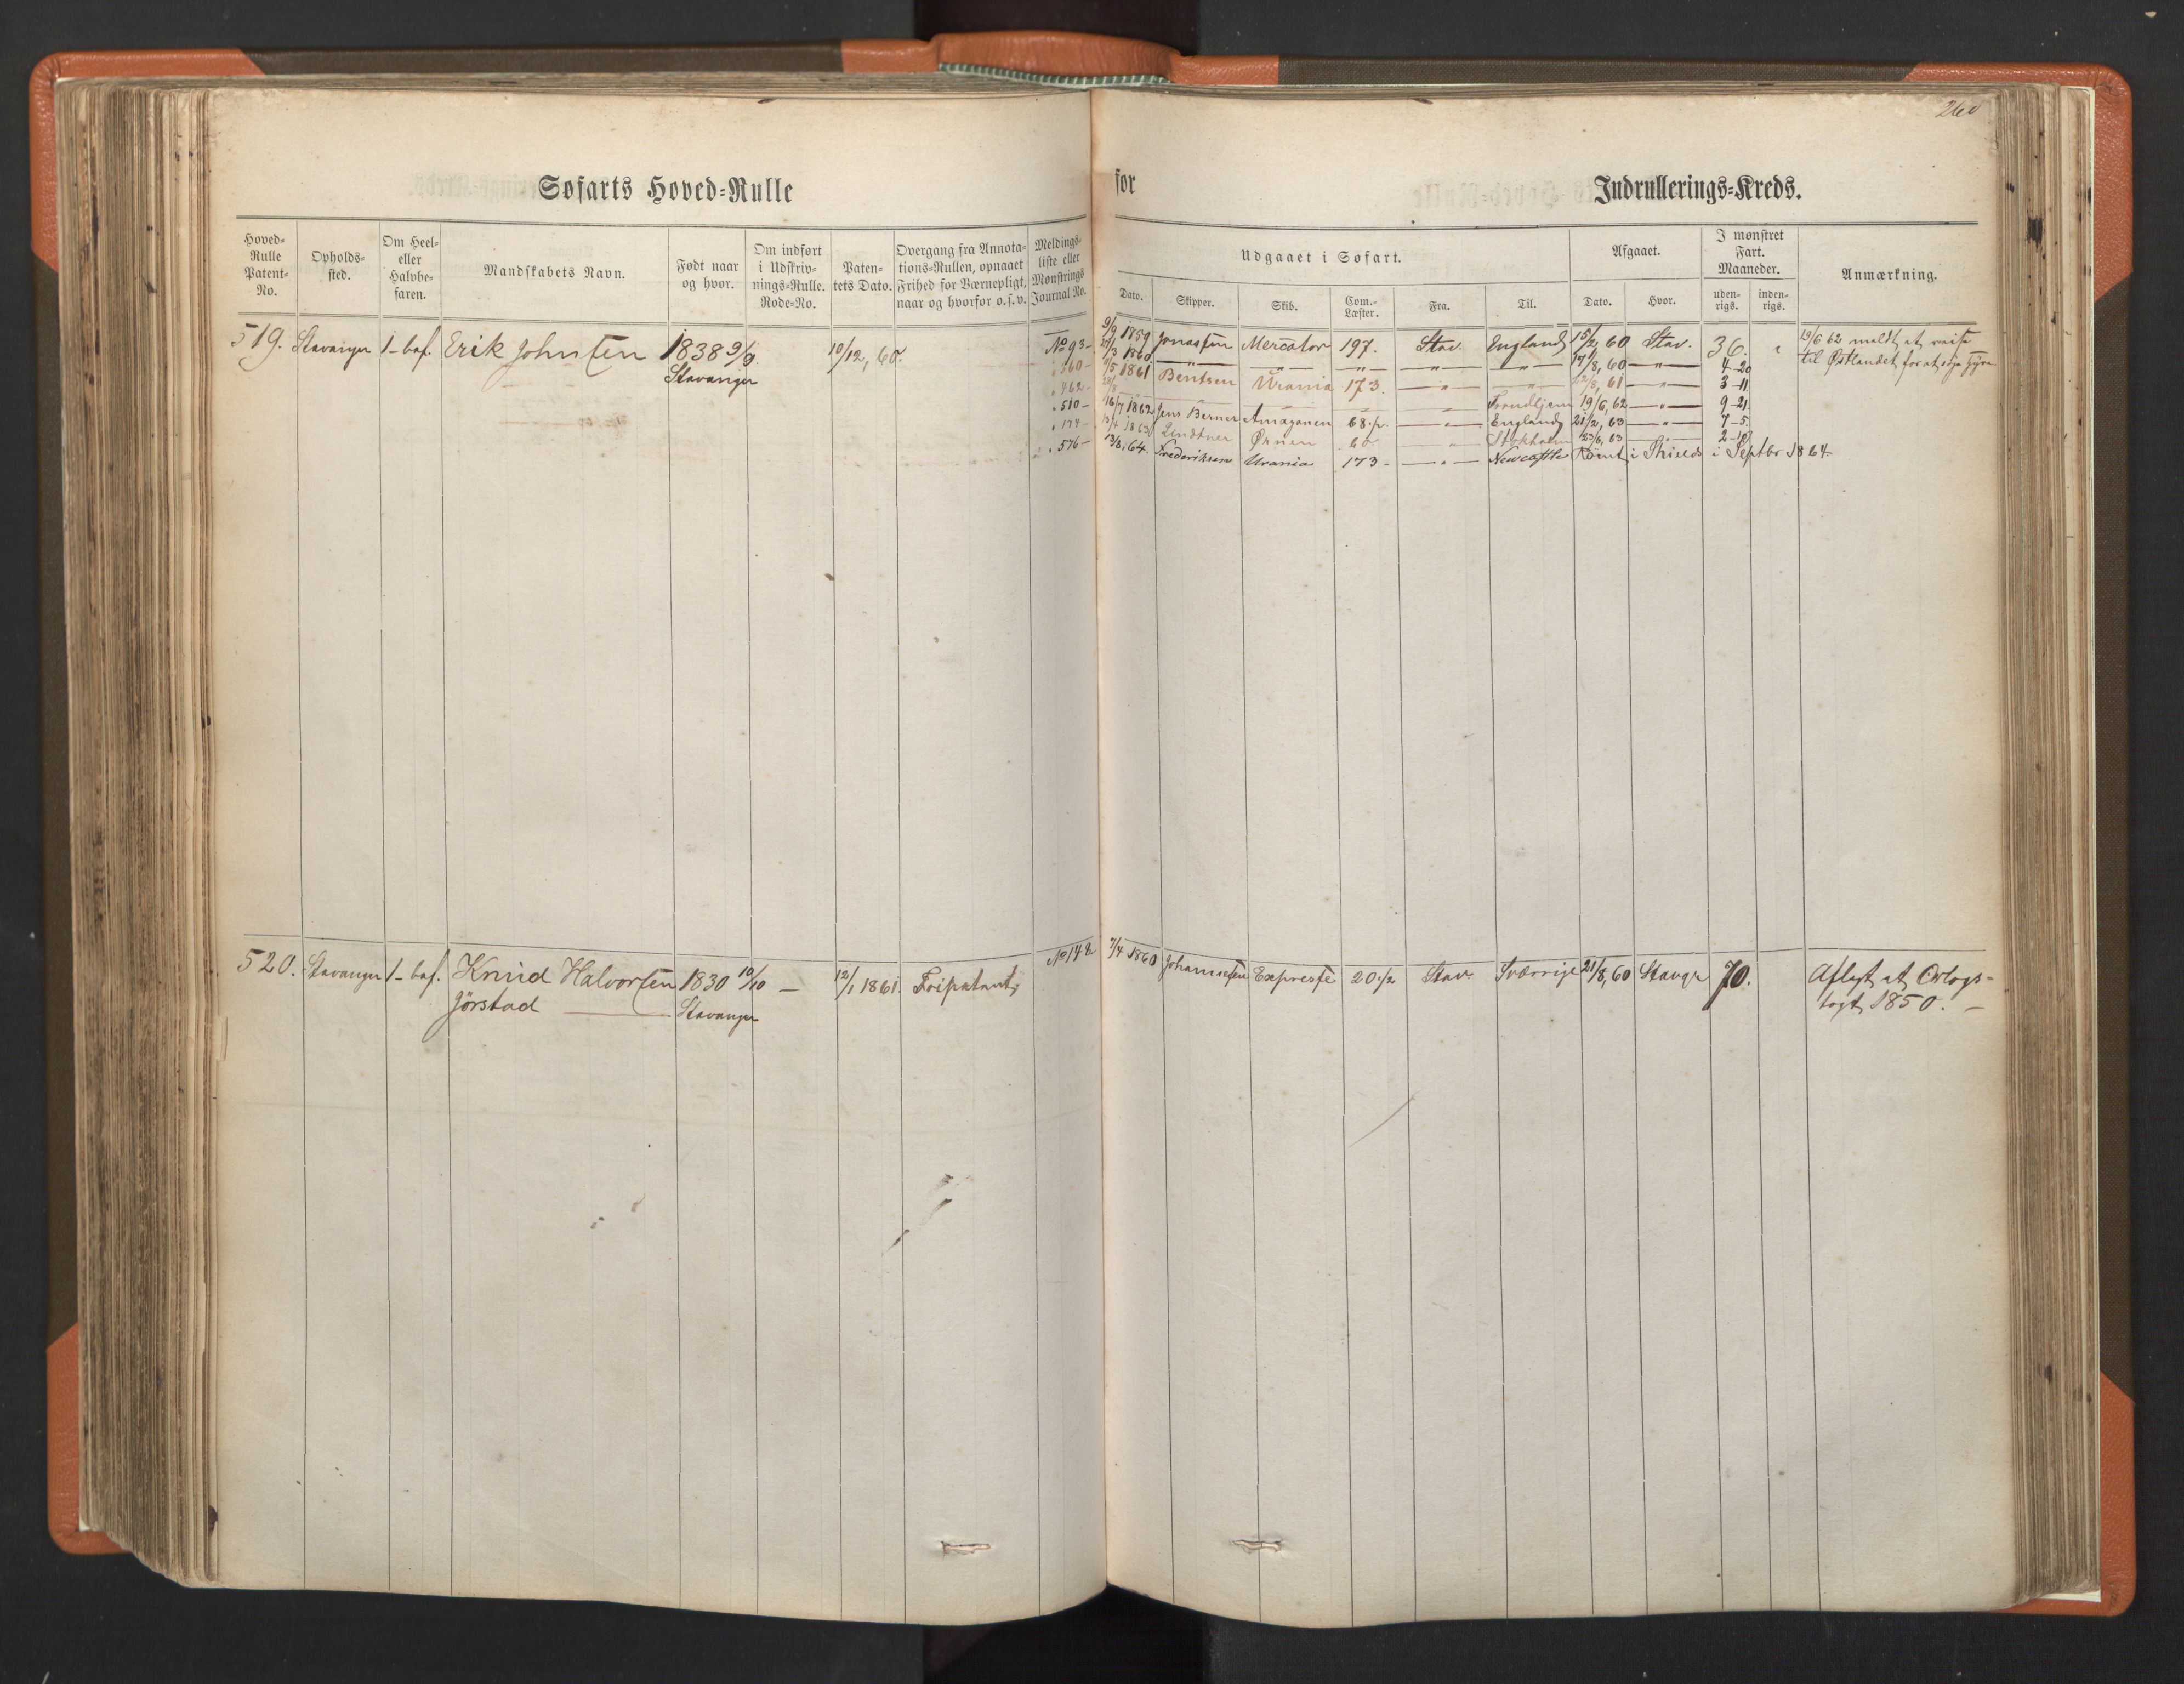 260
Søfarts Hoved-Rulle for Indrullerings-Kreds.
Hoved-Rulle Patent-No.
Opholds-sted.
Om Heel- eller Halvbe-faren.
Mandskabets Navn.
Født naar og hvor.
Om indført i Udskriv-nings-Rulle. Rode-No.
Paten-tets Dato.
Overgang fra Annota-tions-Rullen, opnaaet Frihed for Værnepligt, naar og hvorfor o.s.v.
Meldings-liste eller Mønstrings Journal No.
Udgaaet i Søfart.
Dato.
Skipper.
Skib.
Com.-Læster.
Fra.
Til.
Afgaaet.
Dato.
Hvor.
I mønstret Fart. Maaneder.
uden-rigs.
inden-rigs.
Anmærkning.
519. Stavanger 1-bef. Erik Johnsen 1838 9/9 10/12, 60. No 93- 9/9 1859 Jonassen Mercator 197. Stav. England 15/2, 60 Stav. 36. 19/6 62 meldt at reise
Stavanger
360- 1860 — " — — " — — " — — " — — " — 17/8, 60 — " — 4-20 til Østlandet for at søge Hyre
462- 1861 Bentsen Urania 173. — " — — " — 22/8, 61 — " — 3-11
510- 16/7 1862 Jens Berner Amaganen 68 — " — Trondhjem 19/6, 62 — " — 9-21
174- 1863 Lindtner Ørnen England 21/2, 63 — " — 7-5
576- 13/8, 64. Frederiksen Urania 173- — " — Newcastle Rømt i Shields i Septbr 1864.
Stokholm 23/6, 63
520. Stavanger 1-bef. Knud Halvorsen 1830 10/10 — 12/1 1861. Fripatent No 142 7/4 1860 Johannesen Expresse 20 1/2 Stav. Sverrige 21/8, 60 Stavgr 70. Aflagt et Orlogs-
Jörstad — Stavanger togt 1850. —